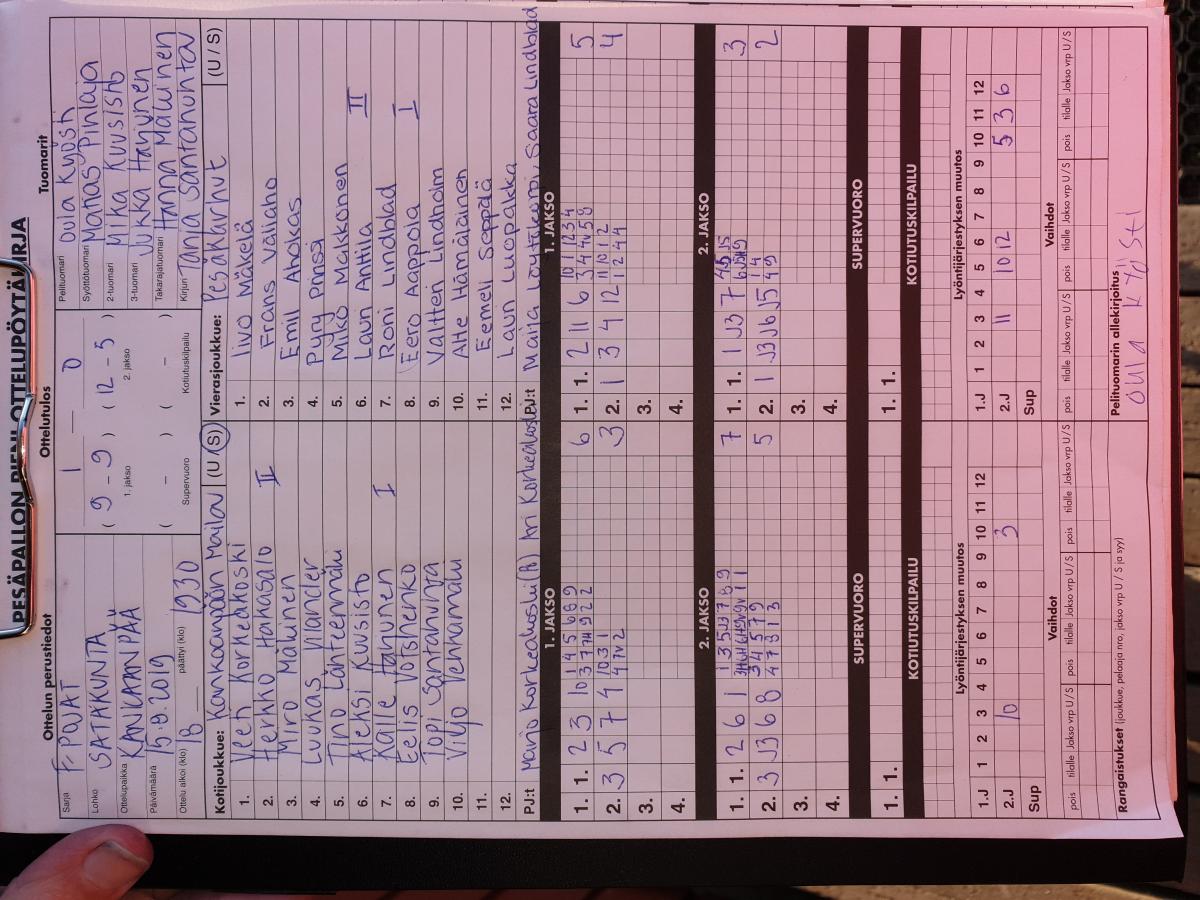 PESÄPALLON PIENI OTTELUPÖYTÄKIRJA
Ottelun perustiedot
Sarja F-POJAT
Lohko SATAKUNTA
Ottelupaikka KANKAANPÄÄ
Päivämäärä 15.9.2019
Ottelu alkoi (klo) 18 päättyi (klo) 1930
Ottelutulos
1 — 0
( 9 - 9 ) ( 12 - 5 )
1. jakso 2. jakso
( - ) ( - )
Supervuoro Kotiutuskilpailu
Tuomarit
Pelituomari Oula Kyösti
Syöttötuomari Matias Pihlaja
2-tuomari Mika Kuusisto
3-tuomari Jukka Harjunen
Takarajatuomari Hanna Mälkinen
Kirjuri Tanja Santahuhta
Kotijoukkue: Kankaanpään Maila (U / S)
1. Veeti Korkeakoski
2. Herkko Hakasalo II
3. Miro Mälkinen
4. Luukas Vilander
5. Timo Lähteenmäki
6. Aleksi Kuusisto
7. Kalle Harjunen I
8. Eelis Votshenko
9. Topi Santahuhta
10. Viljo Vehnämaa
11.
12.
PJ:t Marjo Korkeakoski Ari Korkeakoski
Vierasjoukkue: Pesäkarhut (U / S)
1. Iivo Mäkelä
2. Frans Väliaho
3. Emil Ahokas
4. Pyry Prinssi
5. Miko Makkonen
6. Lauri Anttila II
7. Roni Lindblad
8. Eero Aappola I
9. Valtteri Lindholm
10. Atte Hämäläinen
11. Eemeli Seppälä
12. Lauri Luopakka
PJ:t Maija Löyttiniemi, Saara Lindblad
1. JAKSO 1. JAKSO
1. 1. 2 3 10 1 4 5 6 8 9 6
2. 3 5 7 4 10 3 1 3
3.
4.
1. 1. 2 11 6 10 11 12 3 4 5
2. 1 3 4 12 11 10 1 2 4
3.
4.
2. JAKSO 2. JAKSO
1. 1. 2 6 1 1 3 5 7 8 9 7
2. 3 3 6 8 3 4 5 7 9 5
3.
4.
1. 1. 1 3 7 3
2. 1 3 6 5 2
3.
4.
SUPERVUORO SUPERVUORO
1. 1. 1. 1.
KOTIUTUSKILPAILU KOTIUTUSKILPAILU
Lyöntijärjestyksen muutos
1.J 1 2 3 4 5 6 7 8 9 10 11 12
2.J 10 3
Sup
Lyöntijärjestyksen muutos
1.J 1 2 3 4 5 6 7 8 9 10 11 12
2.J 11 10 12 5 3 6
Sup
Vaihdot
pois tilalle Jakso vrp U / S pois tilalle Jakso vrp U / S pois tilalle Jakso vrp U / S
Vaihdot
pois tilalle Jakso vrp U / S pois tilalle Jakso vrp U / S pois tilalle Jakso vrp U / S
Rangaistukset (joukkue, pelaaja nro, jakso vrp U / S ja syy)
Pelituomarin allekirjoitus
Oula Kyösti